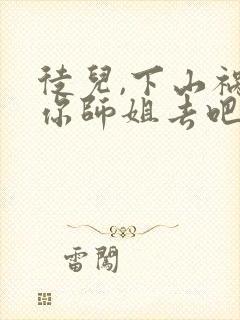 徒兒,下山禍
你師姐去吧
雷闖